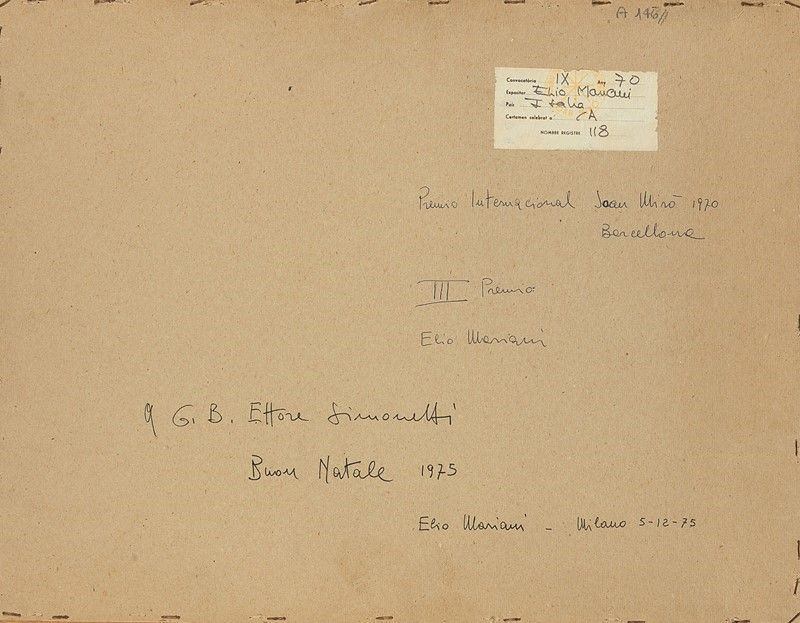 A 146
Convocatòria IX Any 70
Expositor Elio Mariani
País Italia
Certamen celebrat a
NOMBRE REGISTRE 118
Premio Internacional Joan Mirò 1970
Barcellona
III Premio
Elio Mariani
A G. B. Ettore Simonetti
Buon Natale 1975
Elio Mariani - Milano 5-12-75